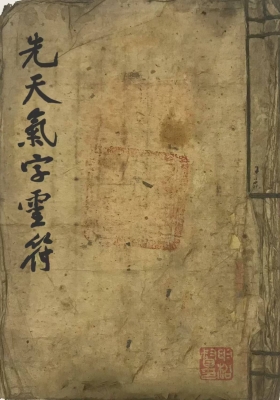 先天氣字霊符